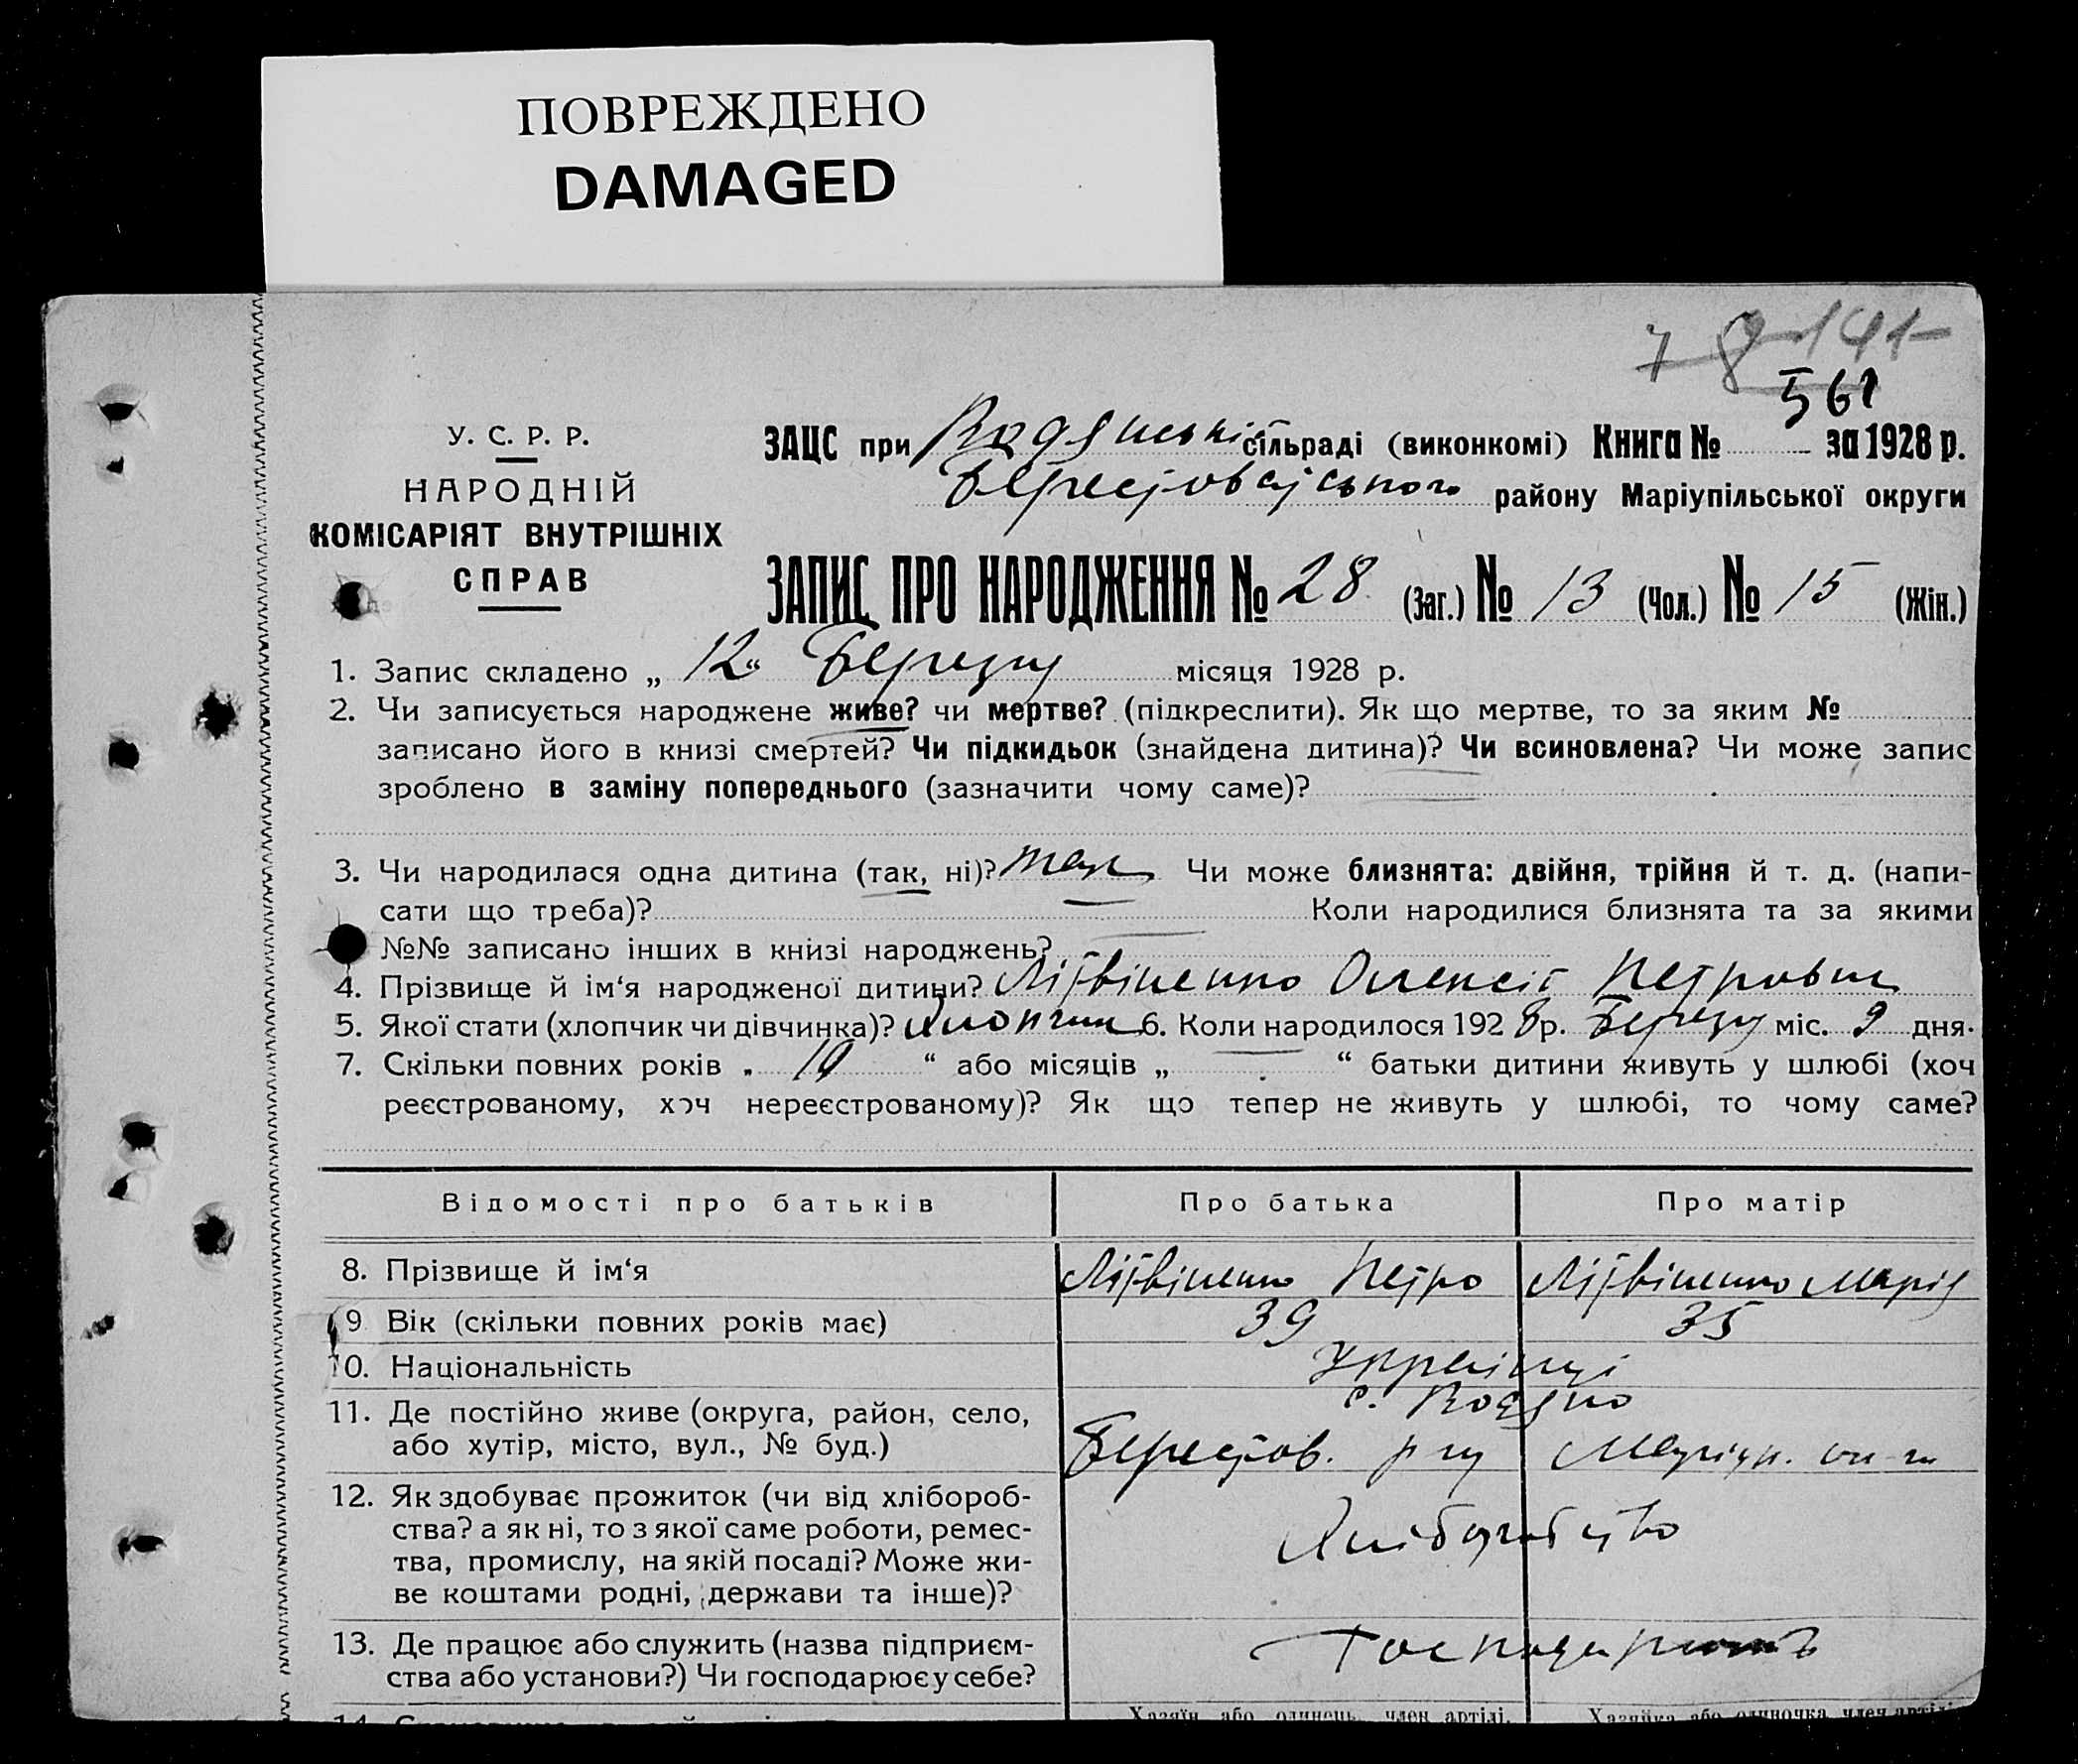 ПОВРЕЖДЕНО
DAMAGED
561
У. С. Р. Р.
НАРОДНІЙ
КОМІСАРІЯТ ВНУТРІШНІХ
СПРАВ
ЗАЦС при Водянській сільраді (виконкомі) Книга № за 1928 р.
Берестоватського району Маріупільської округи
ЗАПИС ПРО НАРОДЖЕННЯ № 28 (Заг.) № 13 (Чол.) № 15 (Жін.)
1. Запис складено „ 12 “ Березня місяця 1928 р.
2. Чи записується народжене живе? чи мертве? (підкреслити). Як що мертве, то за яким №
записано його в книзі смертей? Чи підкидьок (знайдена дитина)? Чи всиновлена? Чи може запис
зроблено в заміну попереднього (зазначити чому саме)?
3. Чи народилася одна дитина (так, ні)? так Чи може близнята: двійня, трійня й т. д. (напи-
сати що треба)? Коли народилися близнята та за якими
№№ записано інших в книзі народжень?
4. Прізвище й ім‘я народженої дитини? Літвіненко Олексій Петрович
5. Якої стати (хлопчик чи дівчинка)? Хлопчик 6. Коли народилося 1928 р. Березня міс. 9 дня.
7. Скільки повних років „ 19 “ або місяців „ “ батьки дитини живуть у шлюбі (хоч
реєстрованому, хоч нереєстрованому)? Як що тепер не живуть у шлюбі, то чому саме?
Відомості про батьків Про батька Про матір
8. Прізвище й ім‘я Літвіненко Петро Літвіненко Марія
9 Вік (скільки повних років має) 39 35
10. Національність Українці
11. Де постійно живе (округа, район, село, с. Водяно
або хутір, місто, вул., № буд.) Берестов. р-ну Маріуп. ок-ги
12. Як здобуває прожиток (чи від хлібороб-
ства? а як ні, то з якої саме роботи, ремес- Хліборобство
тва, промислу, на якій посаді? Може жи-
ве коштами родні, держави та інше)?
13. Де працює або служить (назва підприєм- Господарюють
ства або установи?) Чи господарює у себе?
Хазяїн або одинець, член артілі, Хазяйка або одиночка член артілі